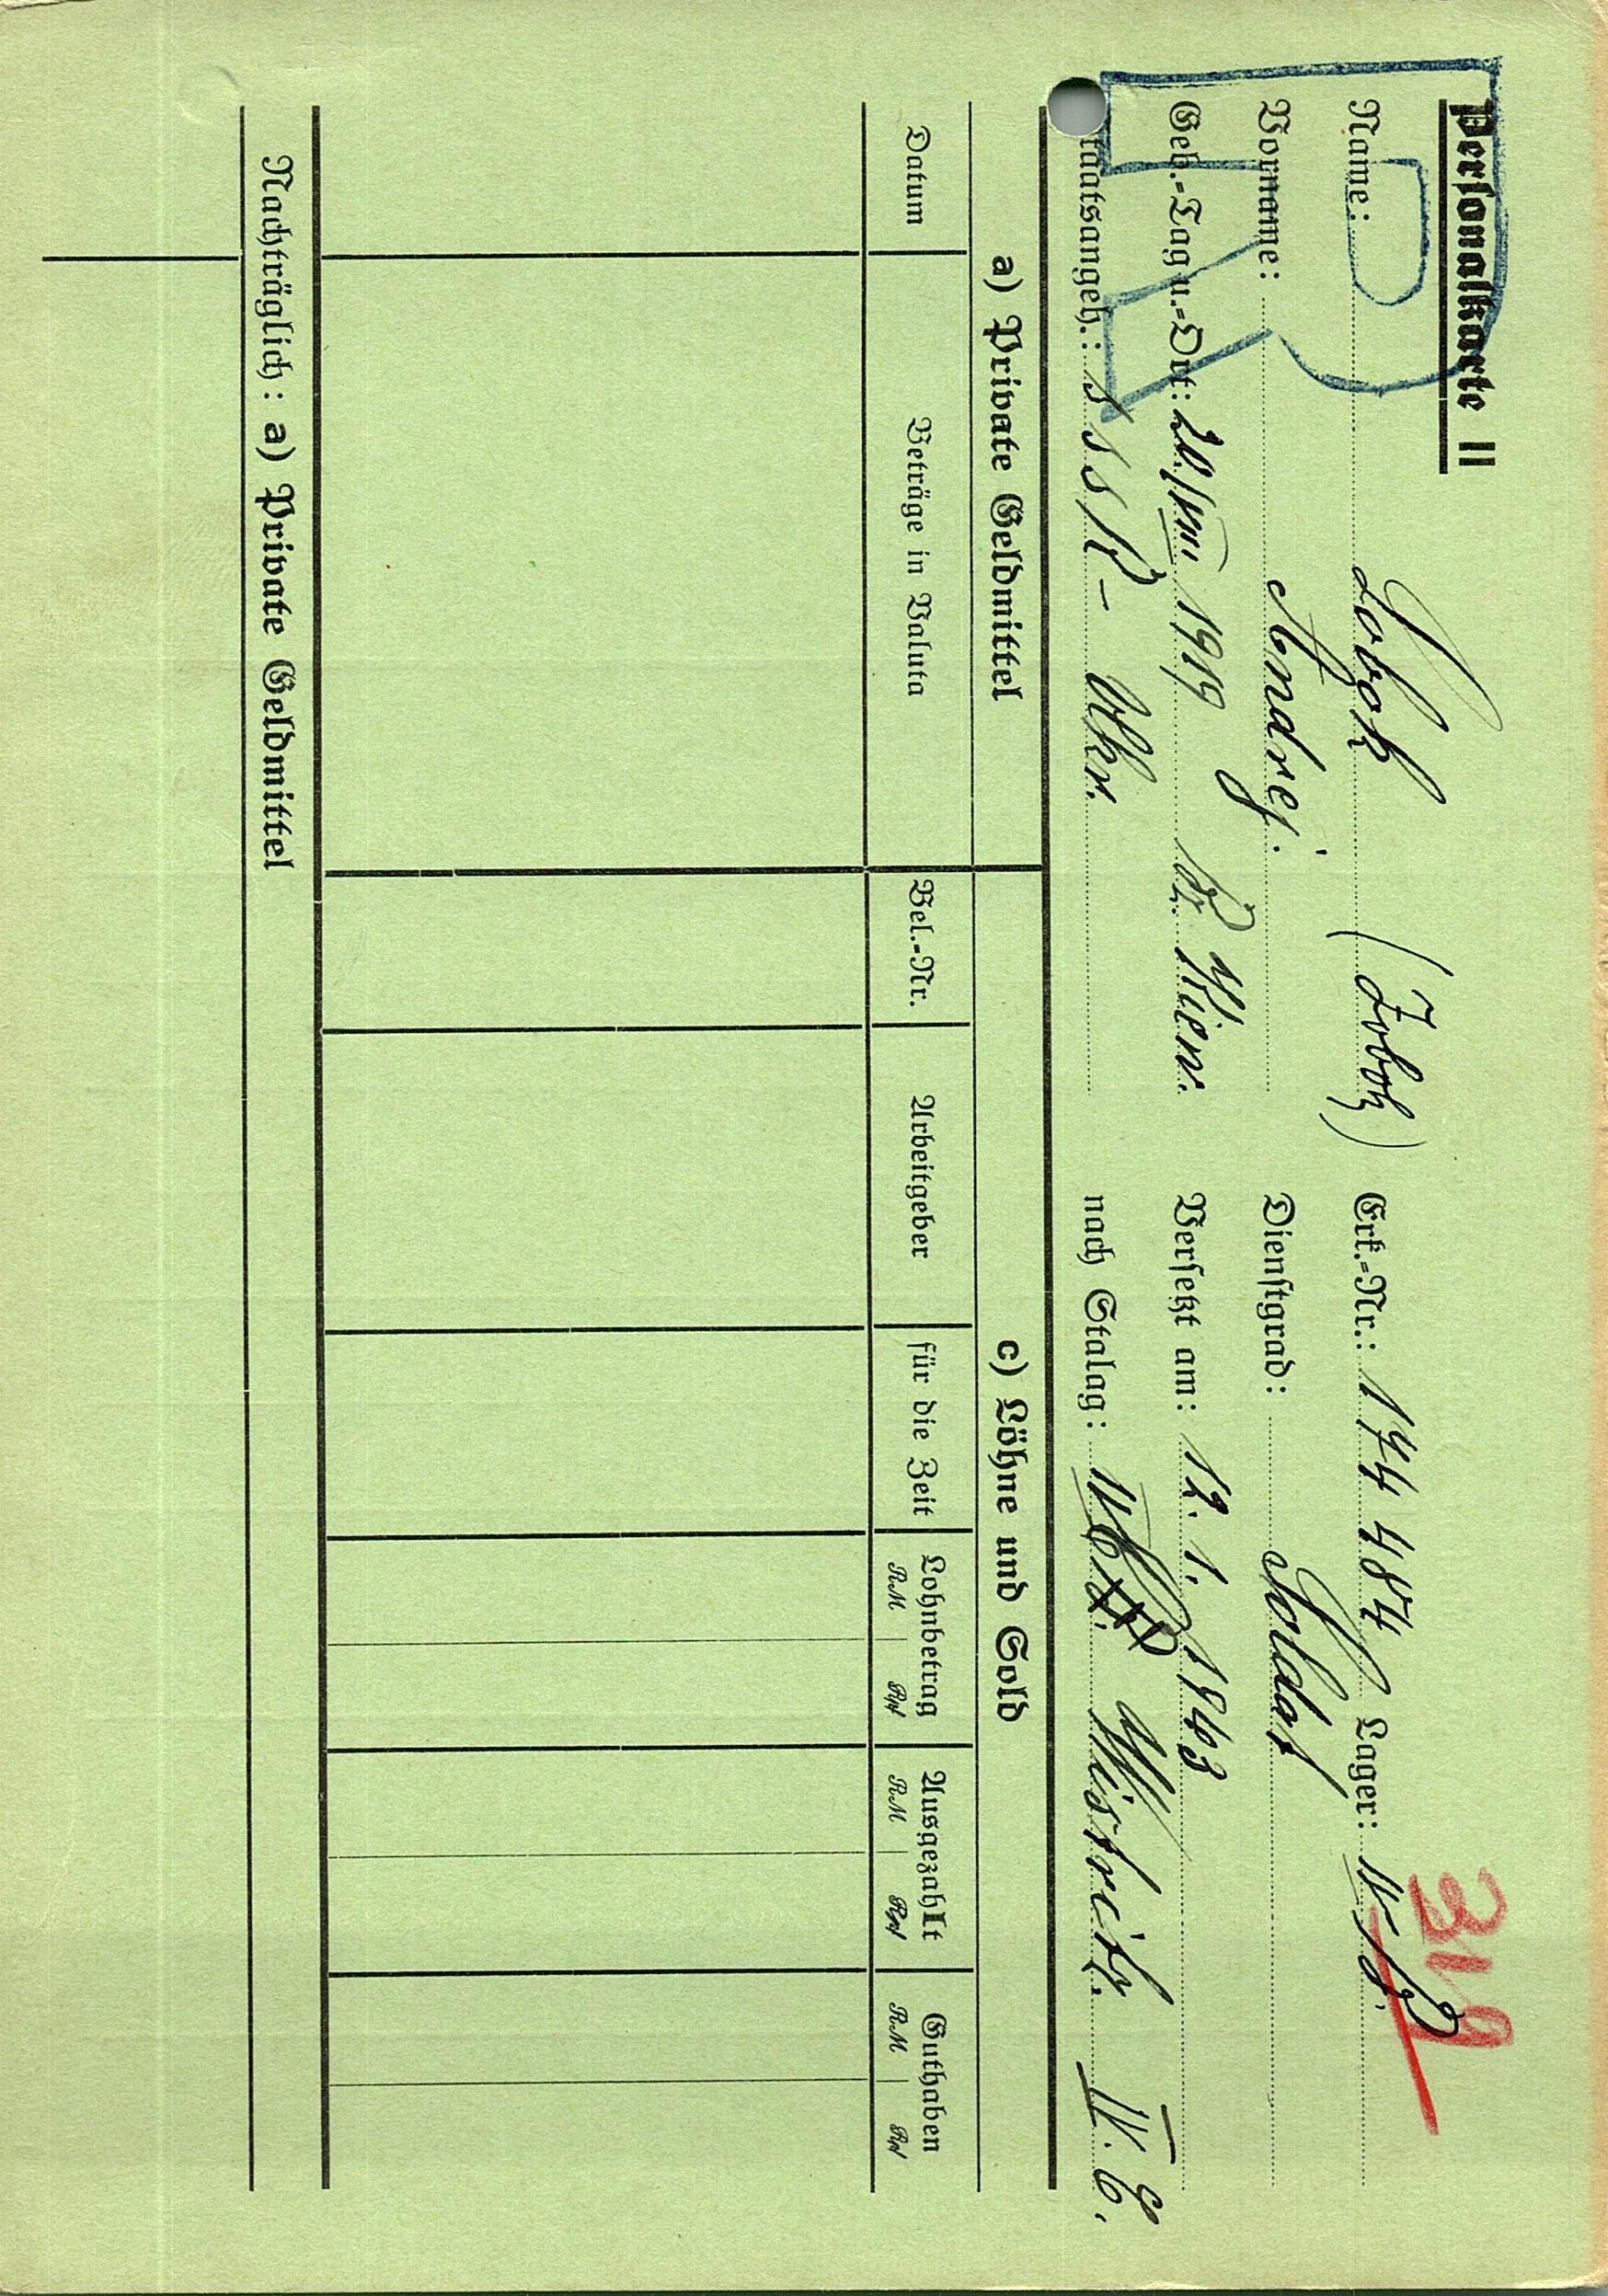 Personalkarte II
R
319
Name: Sobok (Zobok) Erk.-Nr.: 174 484 Lager: IV B.
Vorname: Andrej. Dienstgrad: Soldat
Geb.-Tag u.-Ort: 20./VIII. 1919 Kiew. Versetzt am: 12. 1. 1943
Staatsangeh.: SSSR - Ukr. nach Stalag: Wistritz. IV. C.
a) Private Geldmittel c) Löhne und Sold
Datum Beträge in Valuta Bel.-Nr. Arbeitgeber für die Zeit Lohnbetrag Ausgezahlt Guthaben
RM Rpf RM Rpf RM Rpf
Nachträglich: a) Private Geldmittel